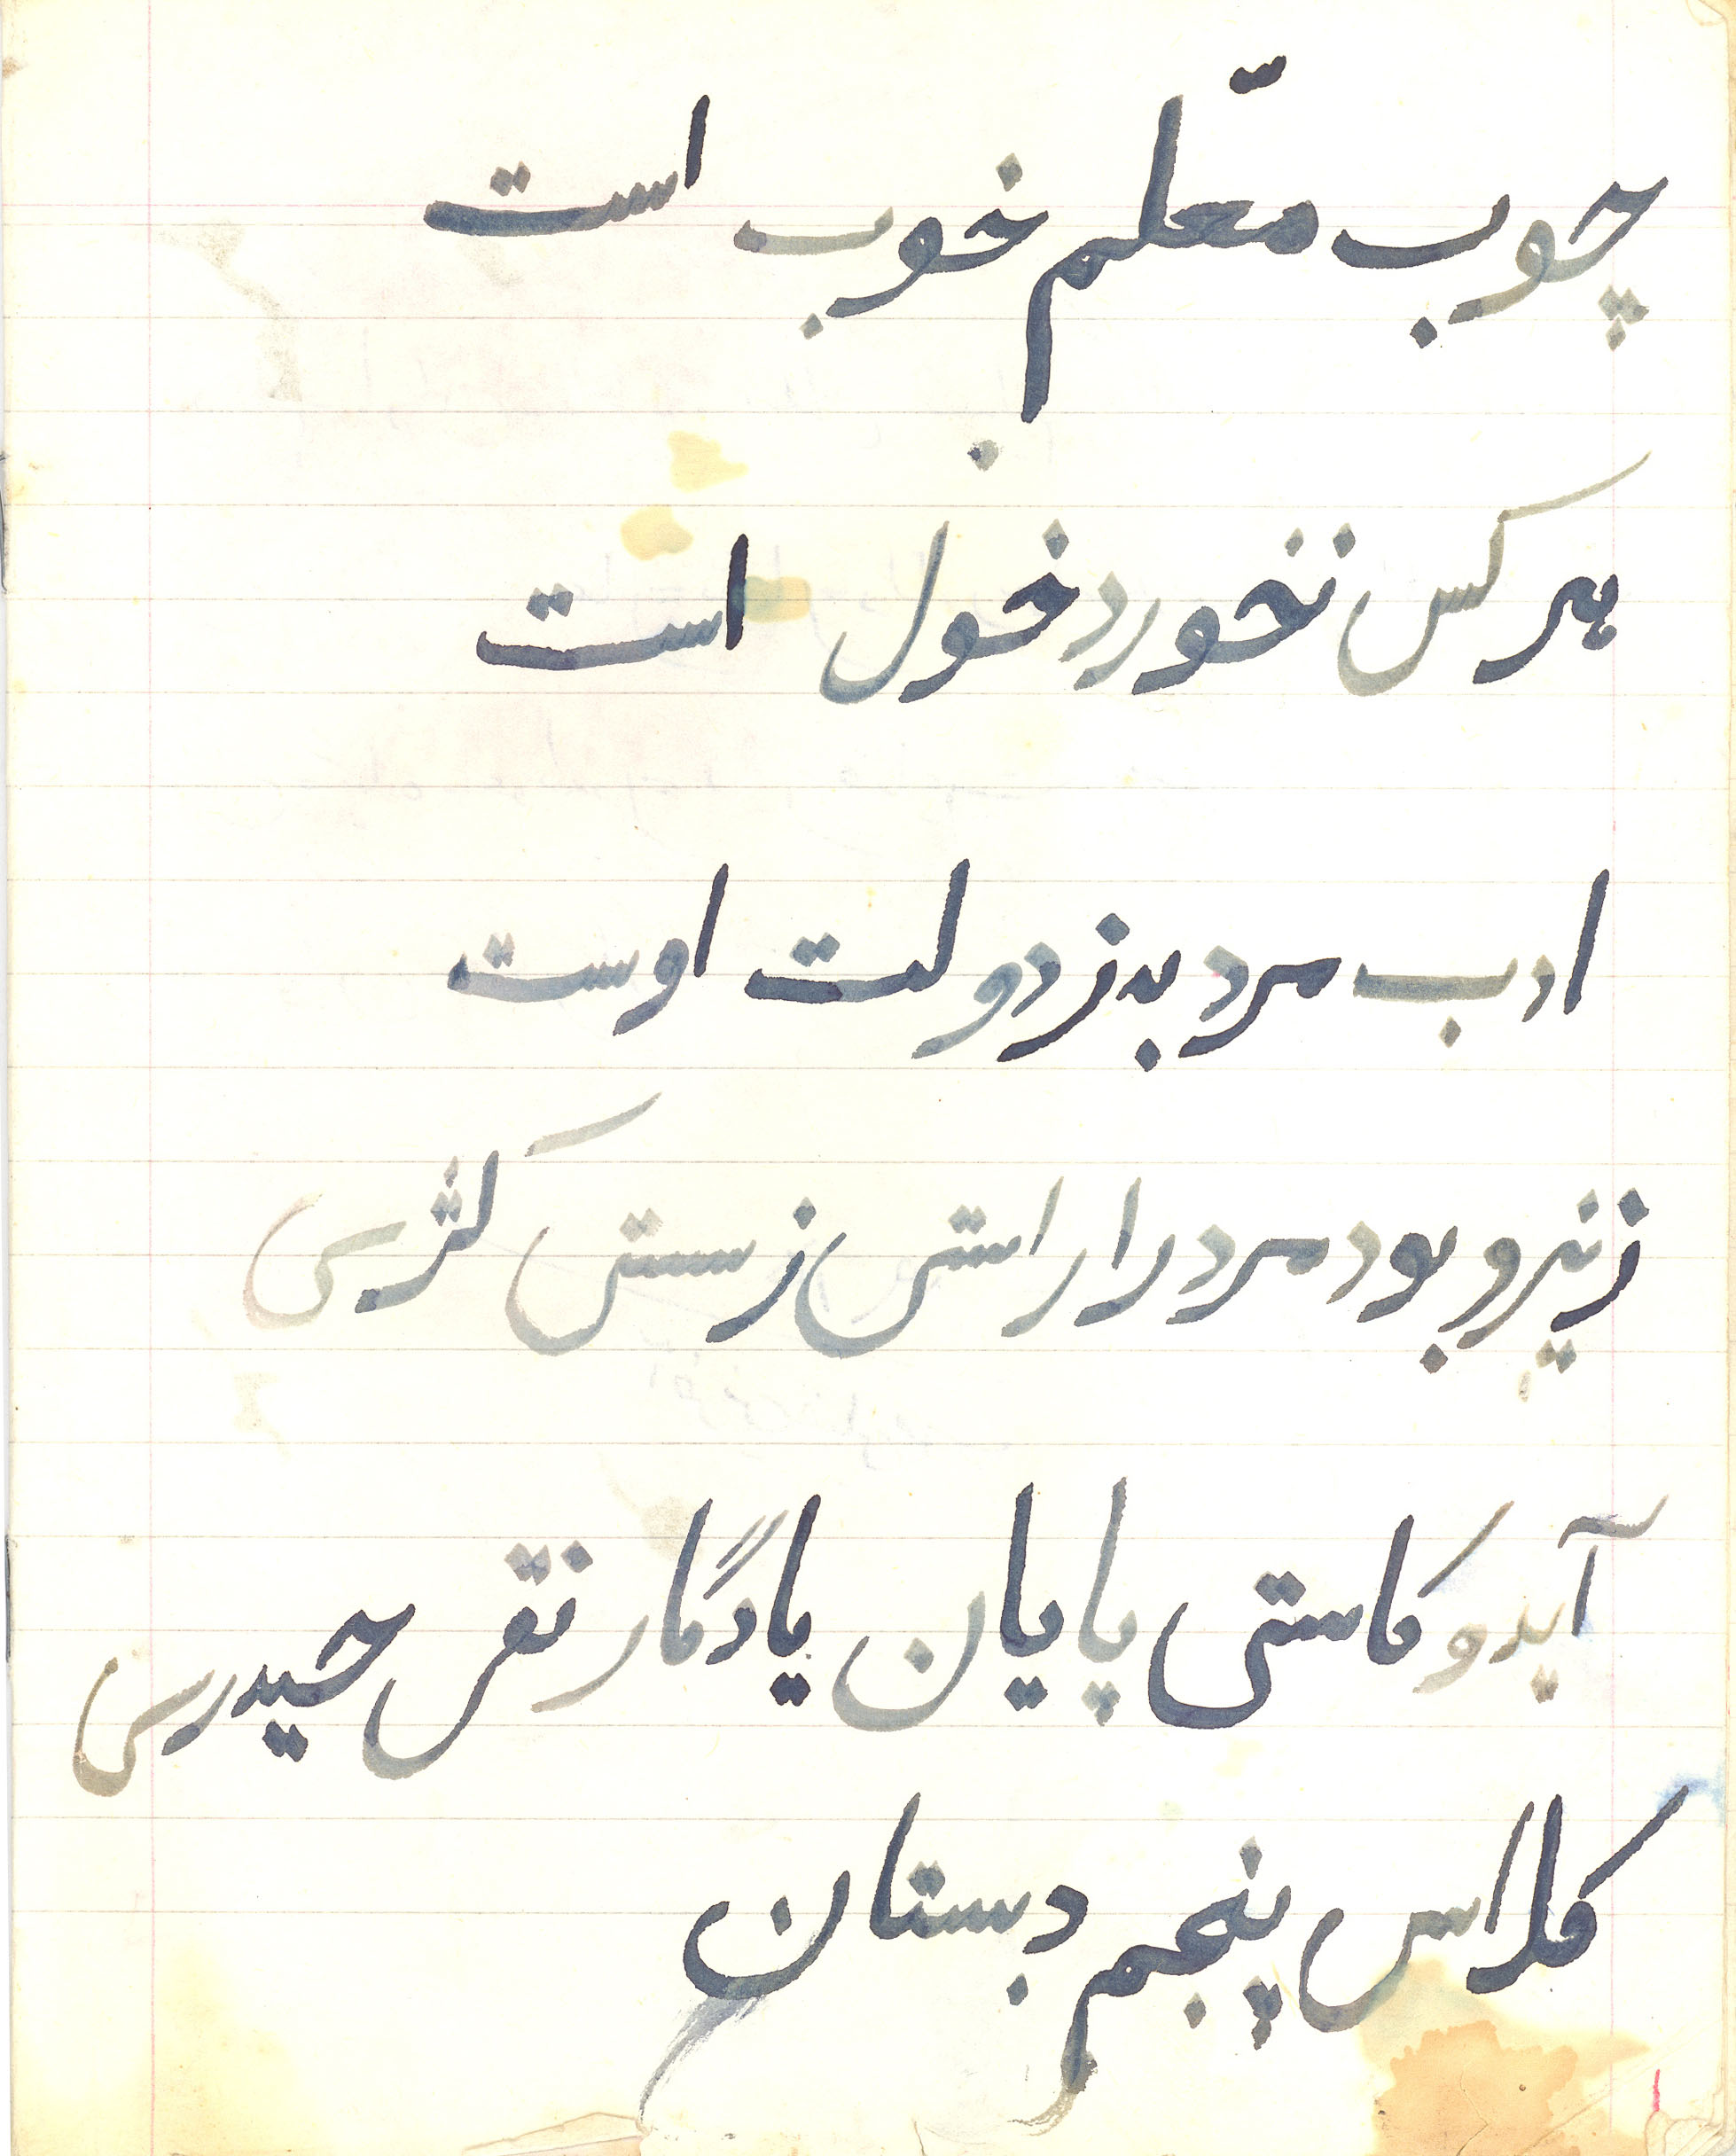 چوب معلّم خوب است
هر کس نخورد خول است
ادب مرد به ز دولت اوست
ز نیرو بود مرد را راستی ز سستی کژی
آید و کاستی پایان یادگار نقی حیدری
کلاس پنجم دبستان